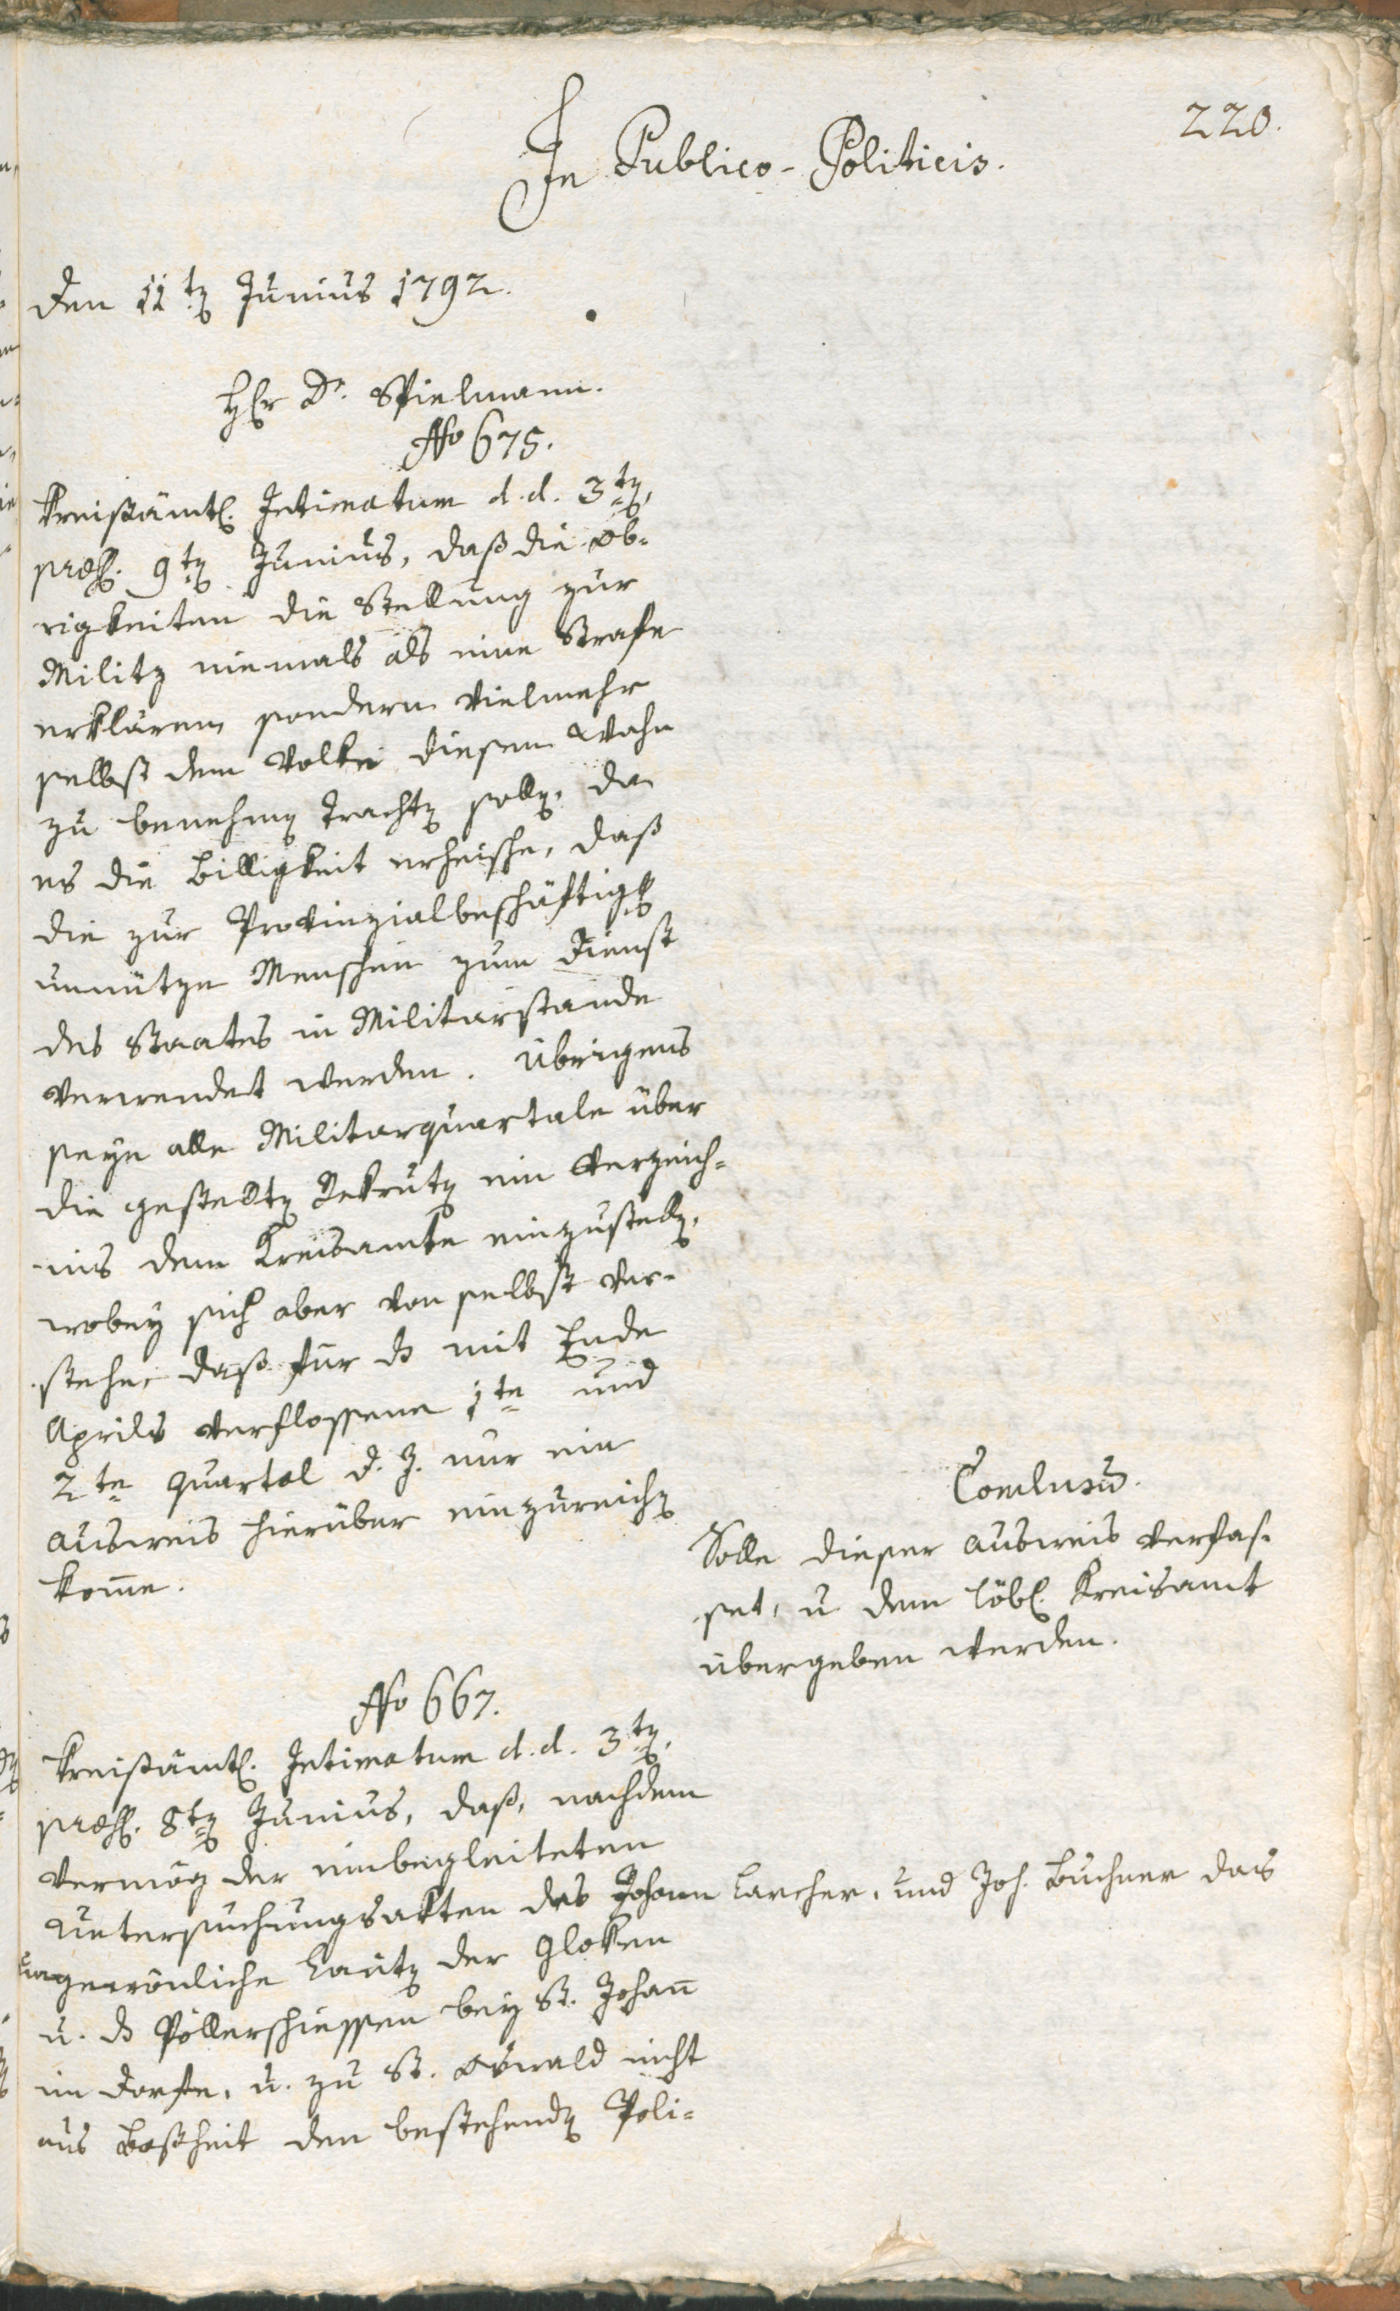 220.
In Publico-Politicis.
Den 11ten Junius 1792.
Herr Dr. Spielmann.
No 675.
Kreißämtl. Intimatum d. d. 3ten,
præs. 9ten Junius, daß die Ob-
rigkeiten die Stellung zur
Militz niemals als eine Strafe
erklären, sondern vielmehr
selbst dem Volke diesen Wahn
zu benehmen trachten sollen, da
es die Billigkeit erheische, daß
die zur Provinzialbeschäftigung
unnütze Menschen zum Dienst
des Staates in Militärstande
verwendet werden. Übrigens
seye alle Militarquartale über
die gestellten Rekruten ein Verzeich-
nis dem Kreisamte einzustellen,
wobey sich aber von selbst ver-
stehe, daß für das mit Ende
Aprils verflossene 1te und
2te Quartal d. J. nur ein
Ausweis hierüber einzureichen
kome.
Conclusum.
Solle dieser Ausweis verfas-
set, u dem löbl. Kreisamt
übergeben werden.
No 667.
Kreißämtl. Intimatum d. d. 3ten,
præs. 8ten Junius, daß, nachdem
vermög der einbegleiteten
Untersuchungsakten des Johann Larcher, und Joh. Buchner das
ungewönliche Läuten der Gloken
u. das Pöllerschiessen bey St. Johann
im Dorfe, u. zu St. Oswald nicht
aus Boßheit den bestehenden Poli-